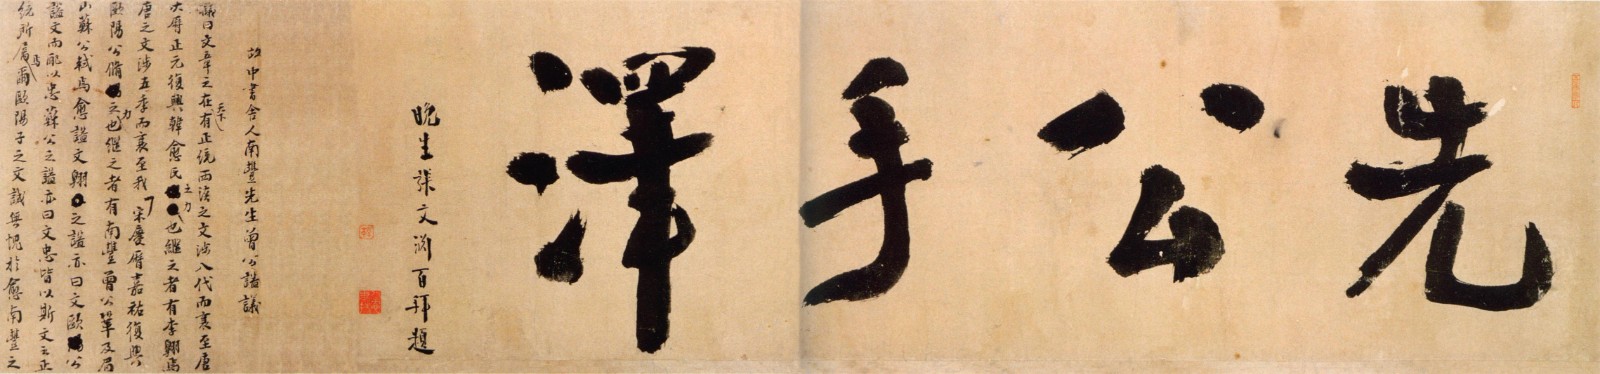 先公手澤
晚生張文淵百拜題
故中書舍人南豐先生曾公謚議
議曰文章之在天下有正統西漢之文涉八代而衰至唐
大曆正元復興韓愈氏之力也繼之者有李翺焉
唐之文涉五季而衰至我宋慶曆嘉祐復興
歐陽公脩之力也繼之者有南豐曾公鞏及眉
山蘇公軾焉愈謚文翺之謚亦曰文歐陽公
謚文而配以忠蘇公之謚亦曰文忠皆以斯文之正
統所屬焉爾歐陽子之文誠無愧於愈南豐之